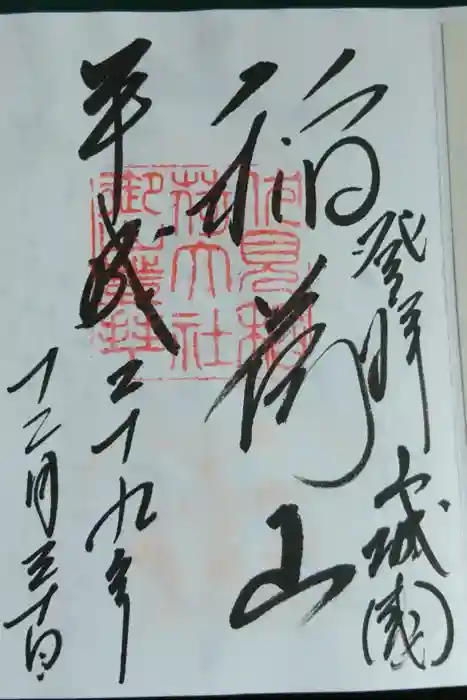 登拝 山城國
稲荷山
平成二十九年
十二月三十日
伏見稲
荷大社